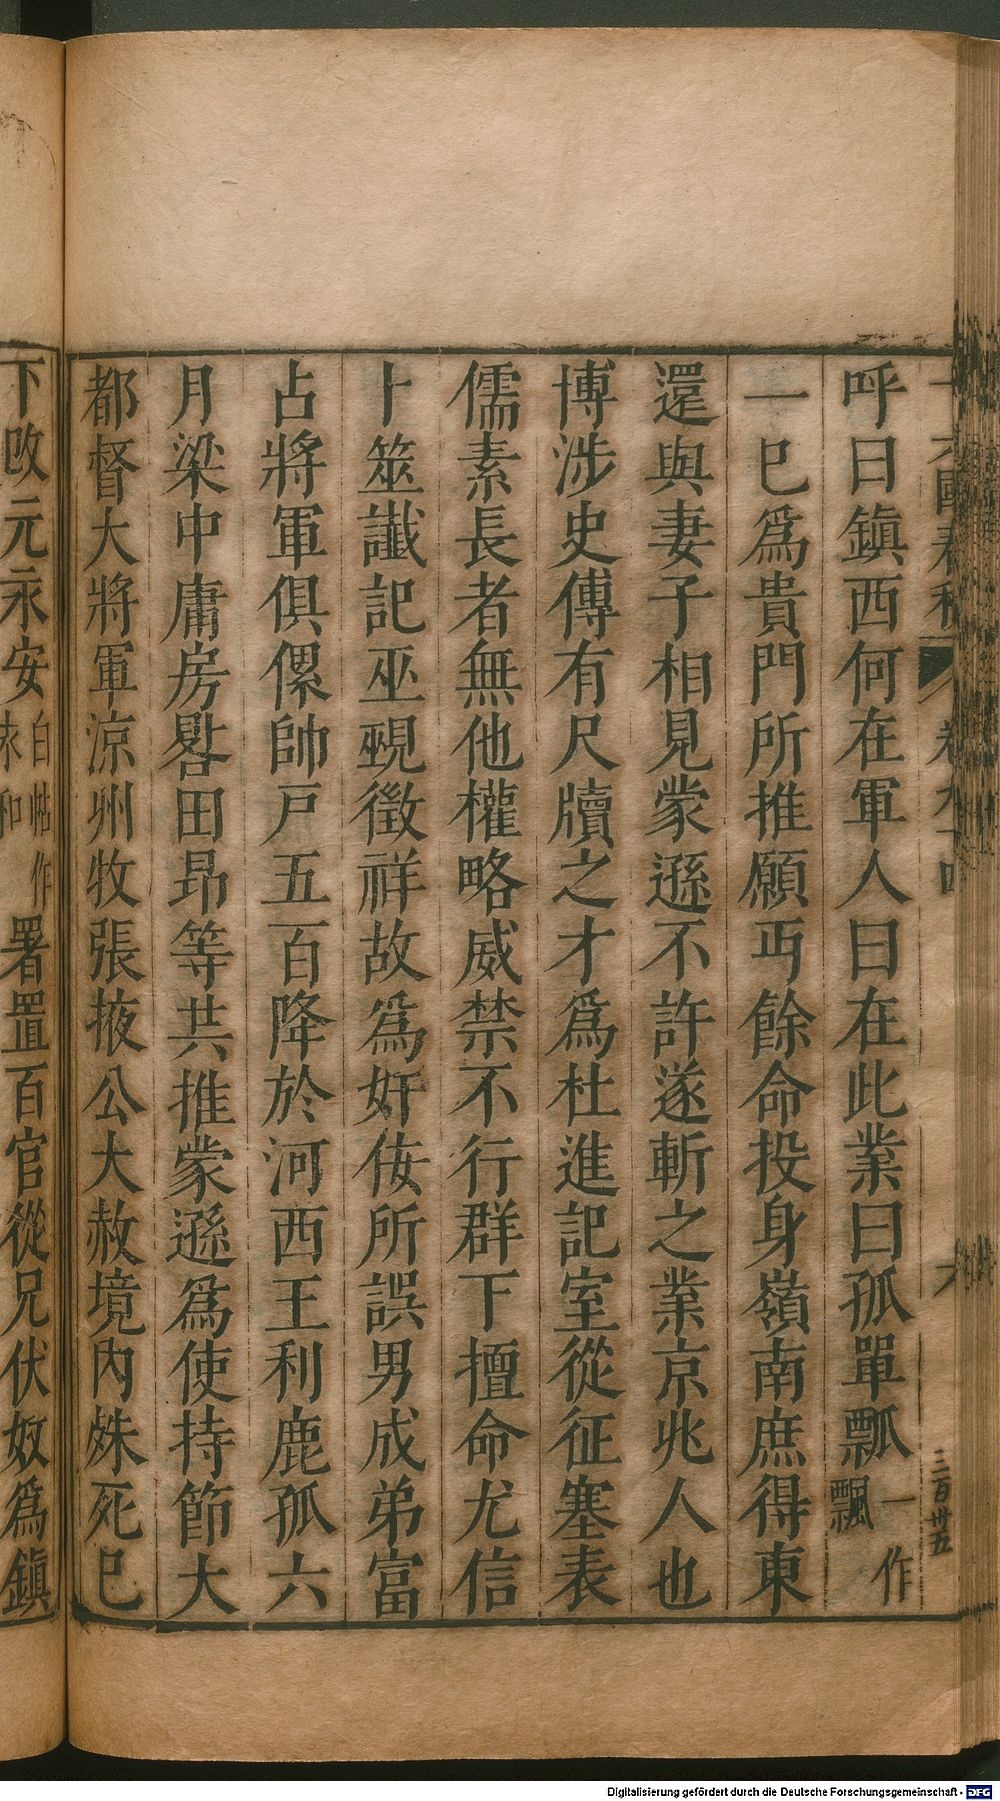 呼曰鎮西何在軍人曰在此業曰孤單瓢一作飄
一巳爲貴門所推願丐餘命投身嶺南庶得東
還與妻子相見蒙遜不許遂斬之業京兆人也
博涉史傳有尺牘之才爲杜進記室從征塞表
儒素長者無他權略威禁不行群下擅命尤信
卜筮讖記巫覡徵祥故爲奸佞所誤男成弟富
占將軍俱傫帥戸五百降於河西王利鹿孤六
月梁中庸房晷田昂等共推蒙遜爲使持節大
都督大將軍涼州牧張掖公大赦境內殊死巳
下改元永安白帖作永和署置百官從兄伏奴爲鎮
三百卅五
Digitalisierung gefördert durch die Deutsche Forschungsgemeinschaft - DFG